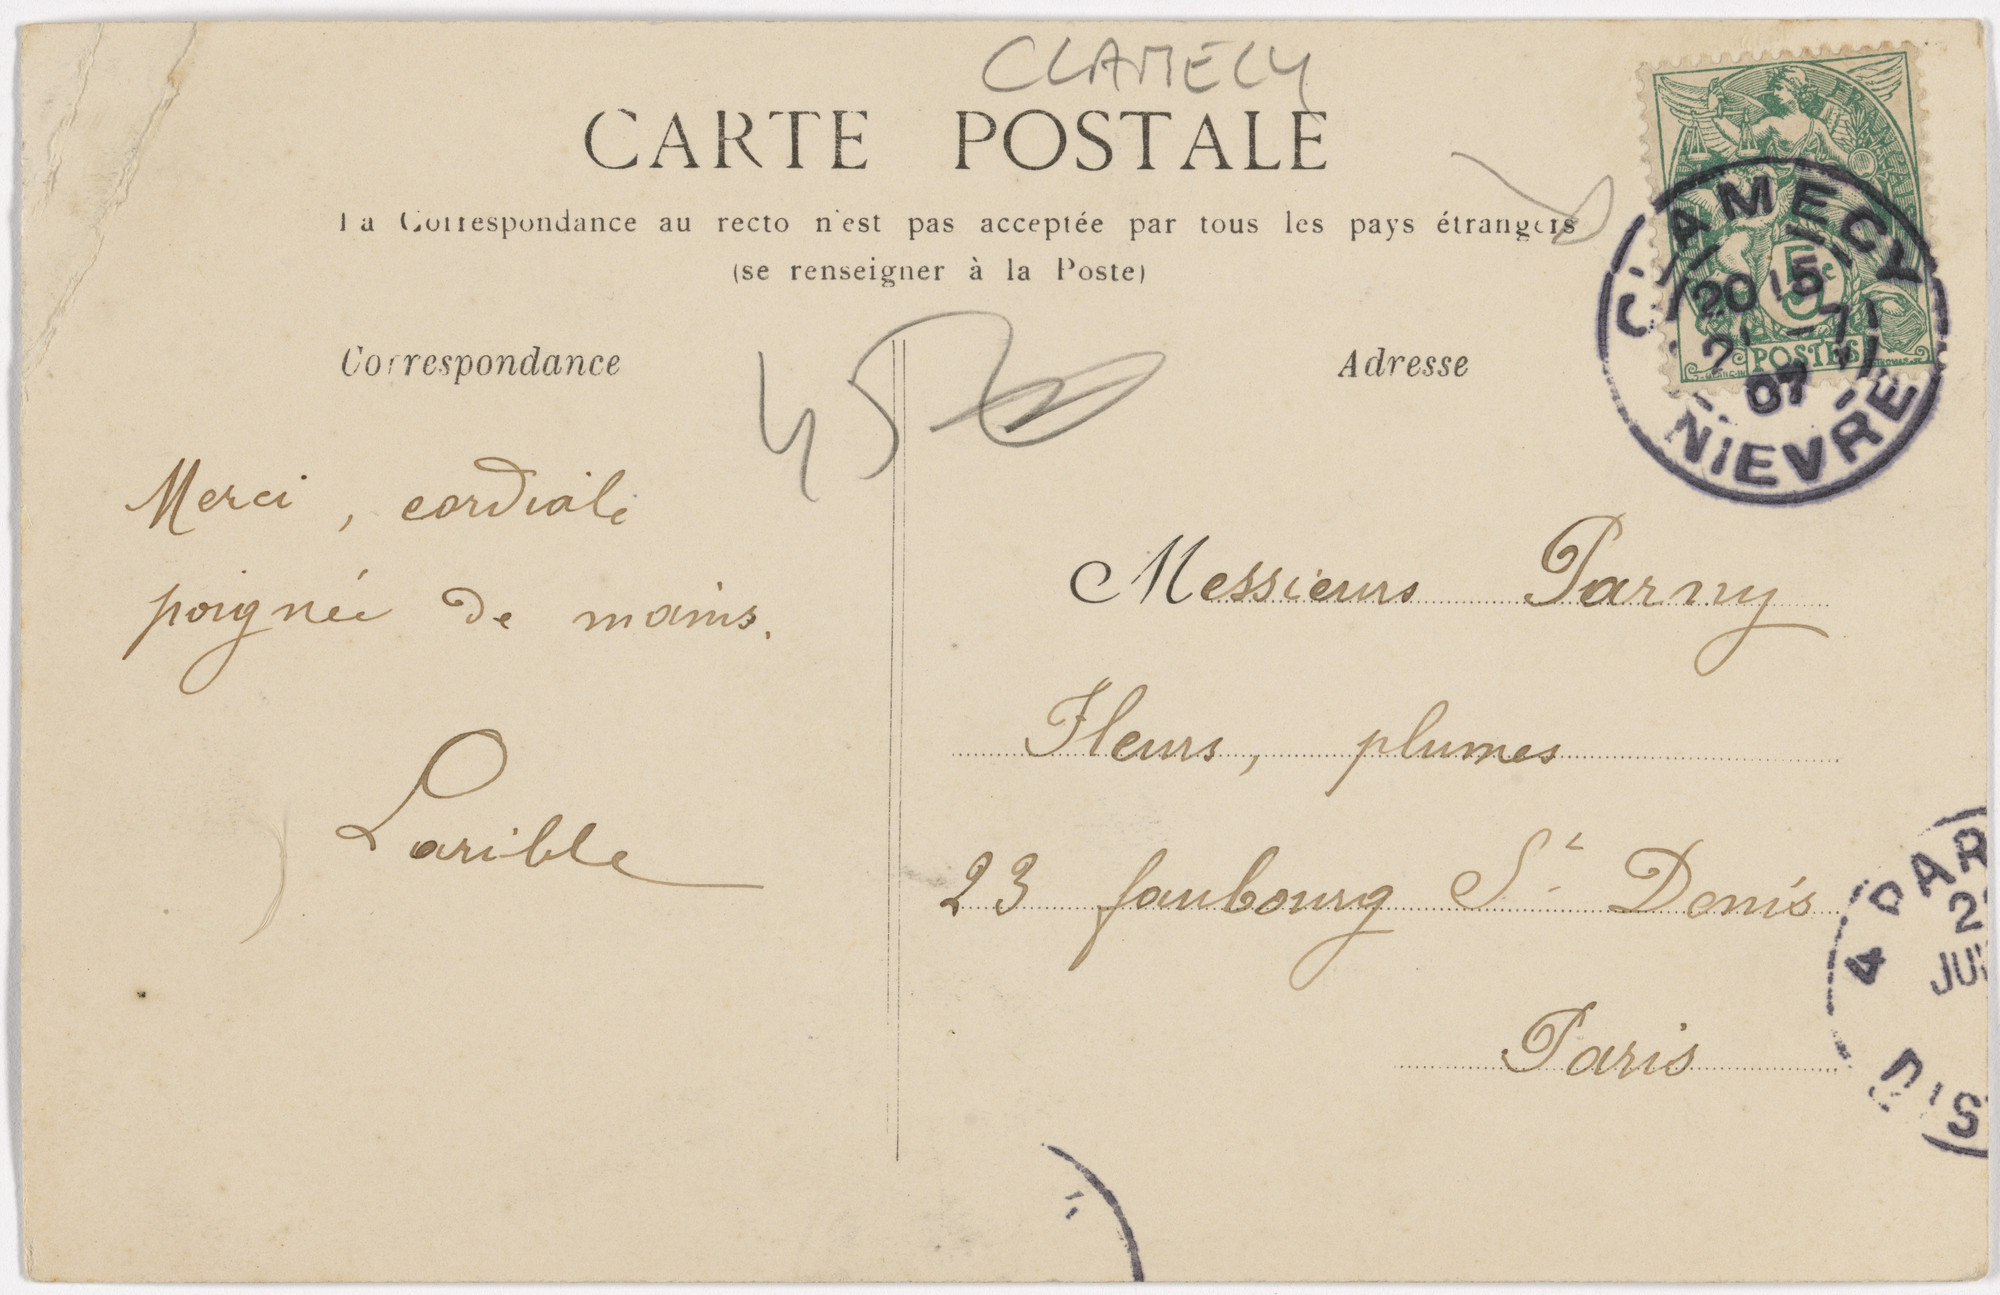 CLAMECY
CARTE POSTALE
La Correspondance au recto n'est pas acceptée par tous les pays étrangers
(se renseigner à la Poste)
Correspondance
Adresse
45
Merci, cordiale
poignée de mains.
Larible
Messieurs Parny
Fleurs, plumes
23 faubourg St. Denis
Paris
CLAMECY
20 15
21 -7
07
NIEVRE
5c
POSTES
4 PAR
2
JUI
DIS